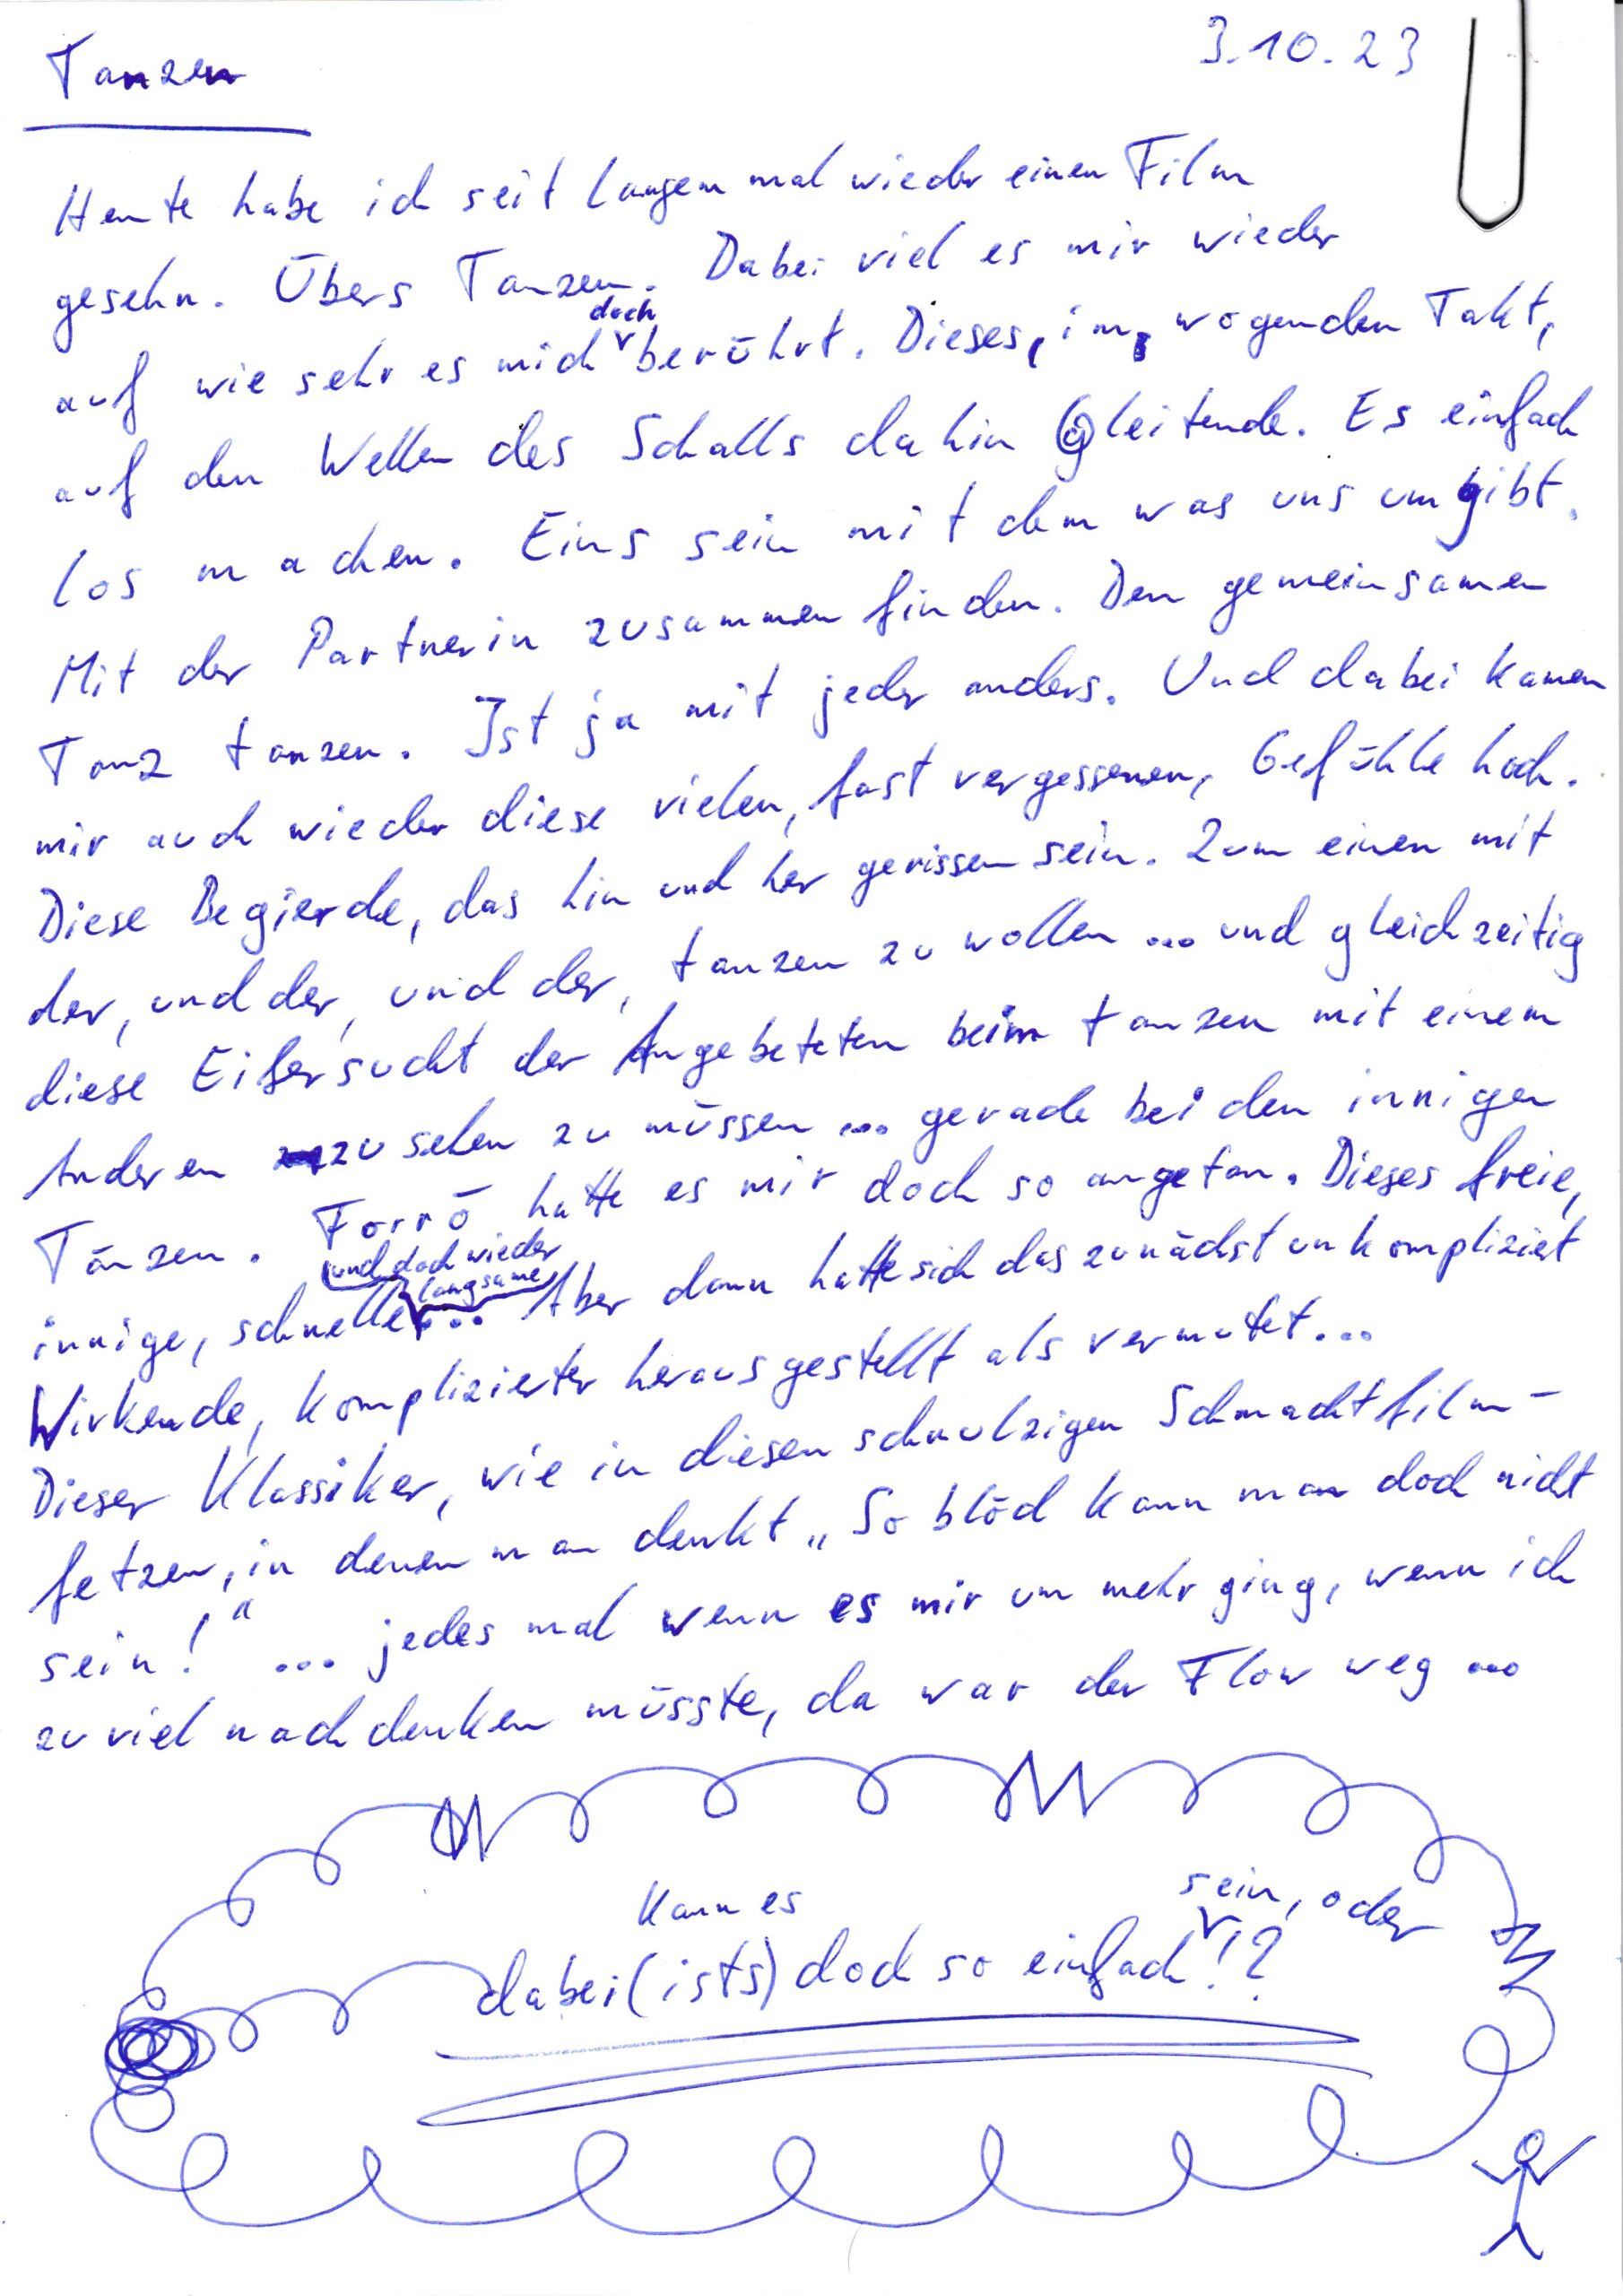 Tanzen
3.10.23
Heute habe ich seit langem mal wieder einen Film
gesehn. Übers Tanzen. Dabei viel es mir wieder
auf wie sehr es mich doch berührt. Dieses, im, wogenden Takt,
auf den Wellen des Schalls dahin gleitende. Es einfach
los machen. Eins sein mit dem was uns umgibt.
Mit der Partnerin zusammen finden. Den gemeinsamen
Tanz tanzen. Ist ja mit jeder anders. Und dabei kamen
mir auch wieder diese vielen, fast vergessenen, Gefühle hoch.
Diese Begierde, das hin und her gerissen sein. Zum einen mit
der, und der, und der, tanzen zu wollen ... und gleichzeitig
diese Eifersucht der Angebeteten beim tanzen mit einem
Anderen zu sehen zu müssen ... gerade bei den innigen
Tänzen. Forró hatte es mir doch so angetan. Dieses freie,
innige, schnelle, und doch wieder langsame ... Aber dann hatte sich das zunächst unkompliziert
Wirkende, komplizierter herausgestellt als vermutet...
Dieser Klassiker, wie in diesen schnulzigen Schmachtfilm-
fetzen, in denen man denkt „So blöd kann man doch nicht
sein!" ... jedes mal wenn es mir um mehr ging, wenn ich
zu viel nach denken müsste, da war der Flow weg ...
Kann es sein, oder
dabei (ists) doch so einfach!?